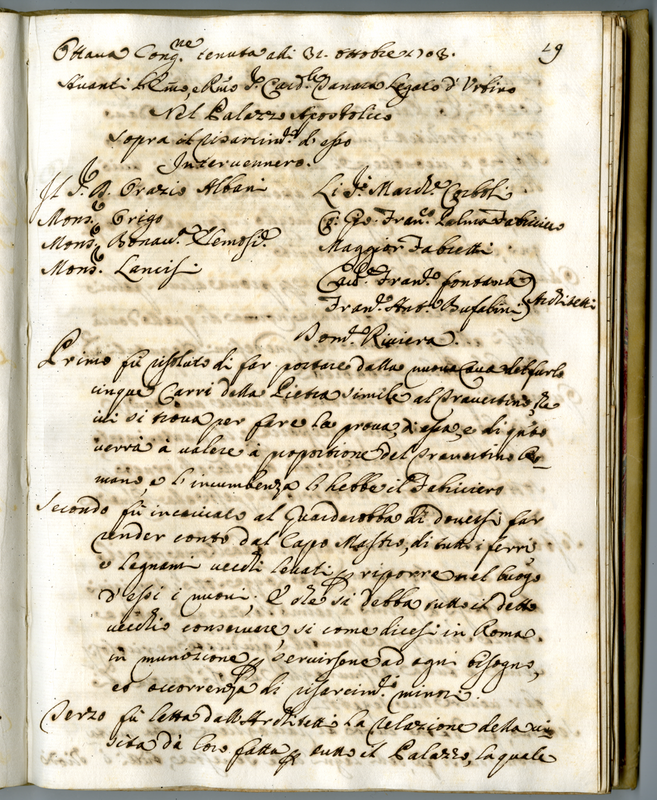 49
Ottava Cong.ne tenuta alli 31. ottobre 1703.
Avanti l'Em.o e R.mo S.r Card.le Tanara Legato d'Urbino
Nel Palazzo Apostolico
sopra il risarcim.to d'esso
Intervennero.
Il S.r D. Orazio Albani
Mons.r Origo
Mons.r Bonav.a Elemos.re
Mons.r Lancisi
Li S.ri March.e Corboli
Gio. Fran.co Palma Fabiciero
Maggior Fabretti
Cav.re Fran.co Fontana
Fran.co Ant.o Bufalini
Architetti
Dom.co Riviera.
Primo fù risoluto di far portare dalla nuova Cava del furlo
cinque Carri della Pietra simile al Travertino, che
ivi si trova per fare la prova d'essa, e di q.to
verrà à valere à proportione del Travertino Ro-
mano, e l'incumbenza l'hebbe il Fabiciero
Secondo fù incaricato al Guardarobba di doversi far
render conto dal Capo Mastro, di tutti i ferri
e legnami vecchi levati p riporre nel luogo
d'essi i nuovi; E che si debba tutto il detto
vecchio conservare, si come dicesi in Roma
in munizione p servirsene ad ogni bisogno,
et occorrenza di risarcim.ti minori.
Terzo fù letta dall'Architetti la relazione della vi-
sita da loro fatta p tutto il Palazzo, la quale